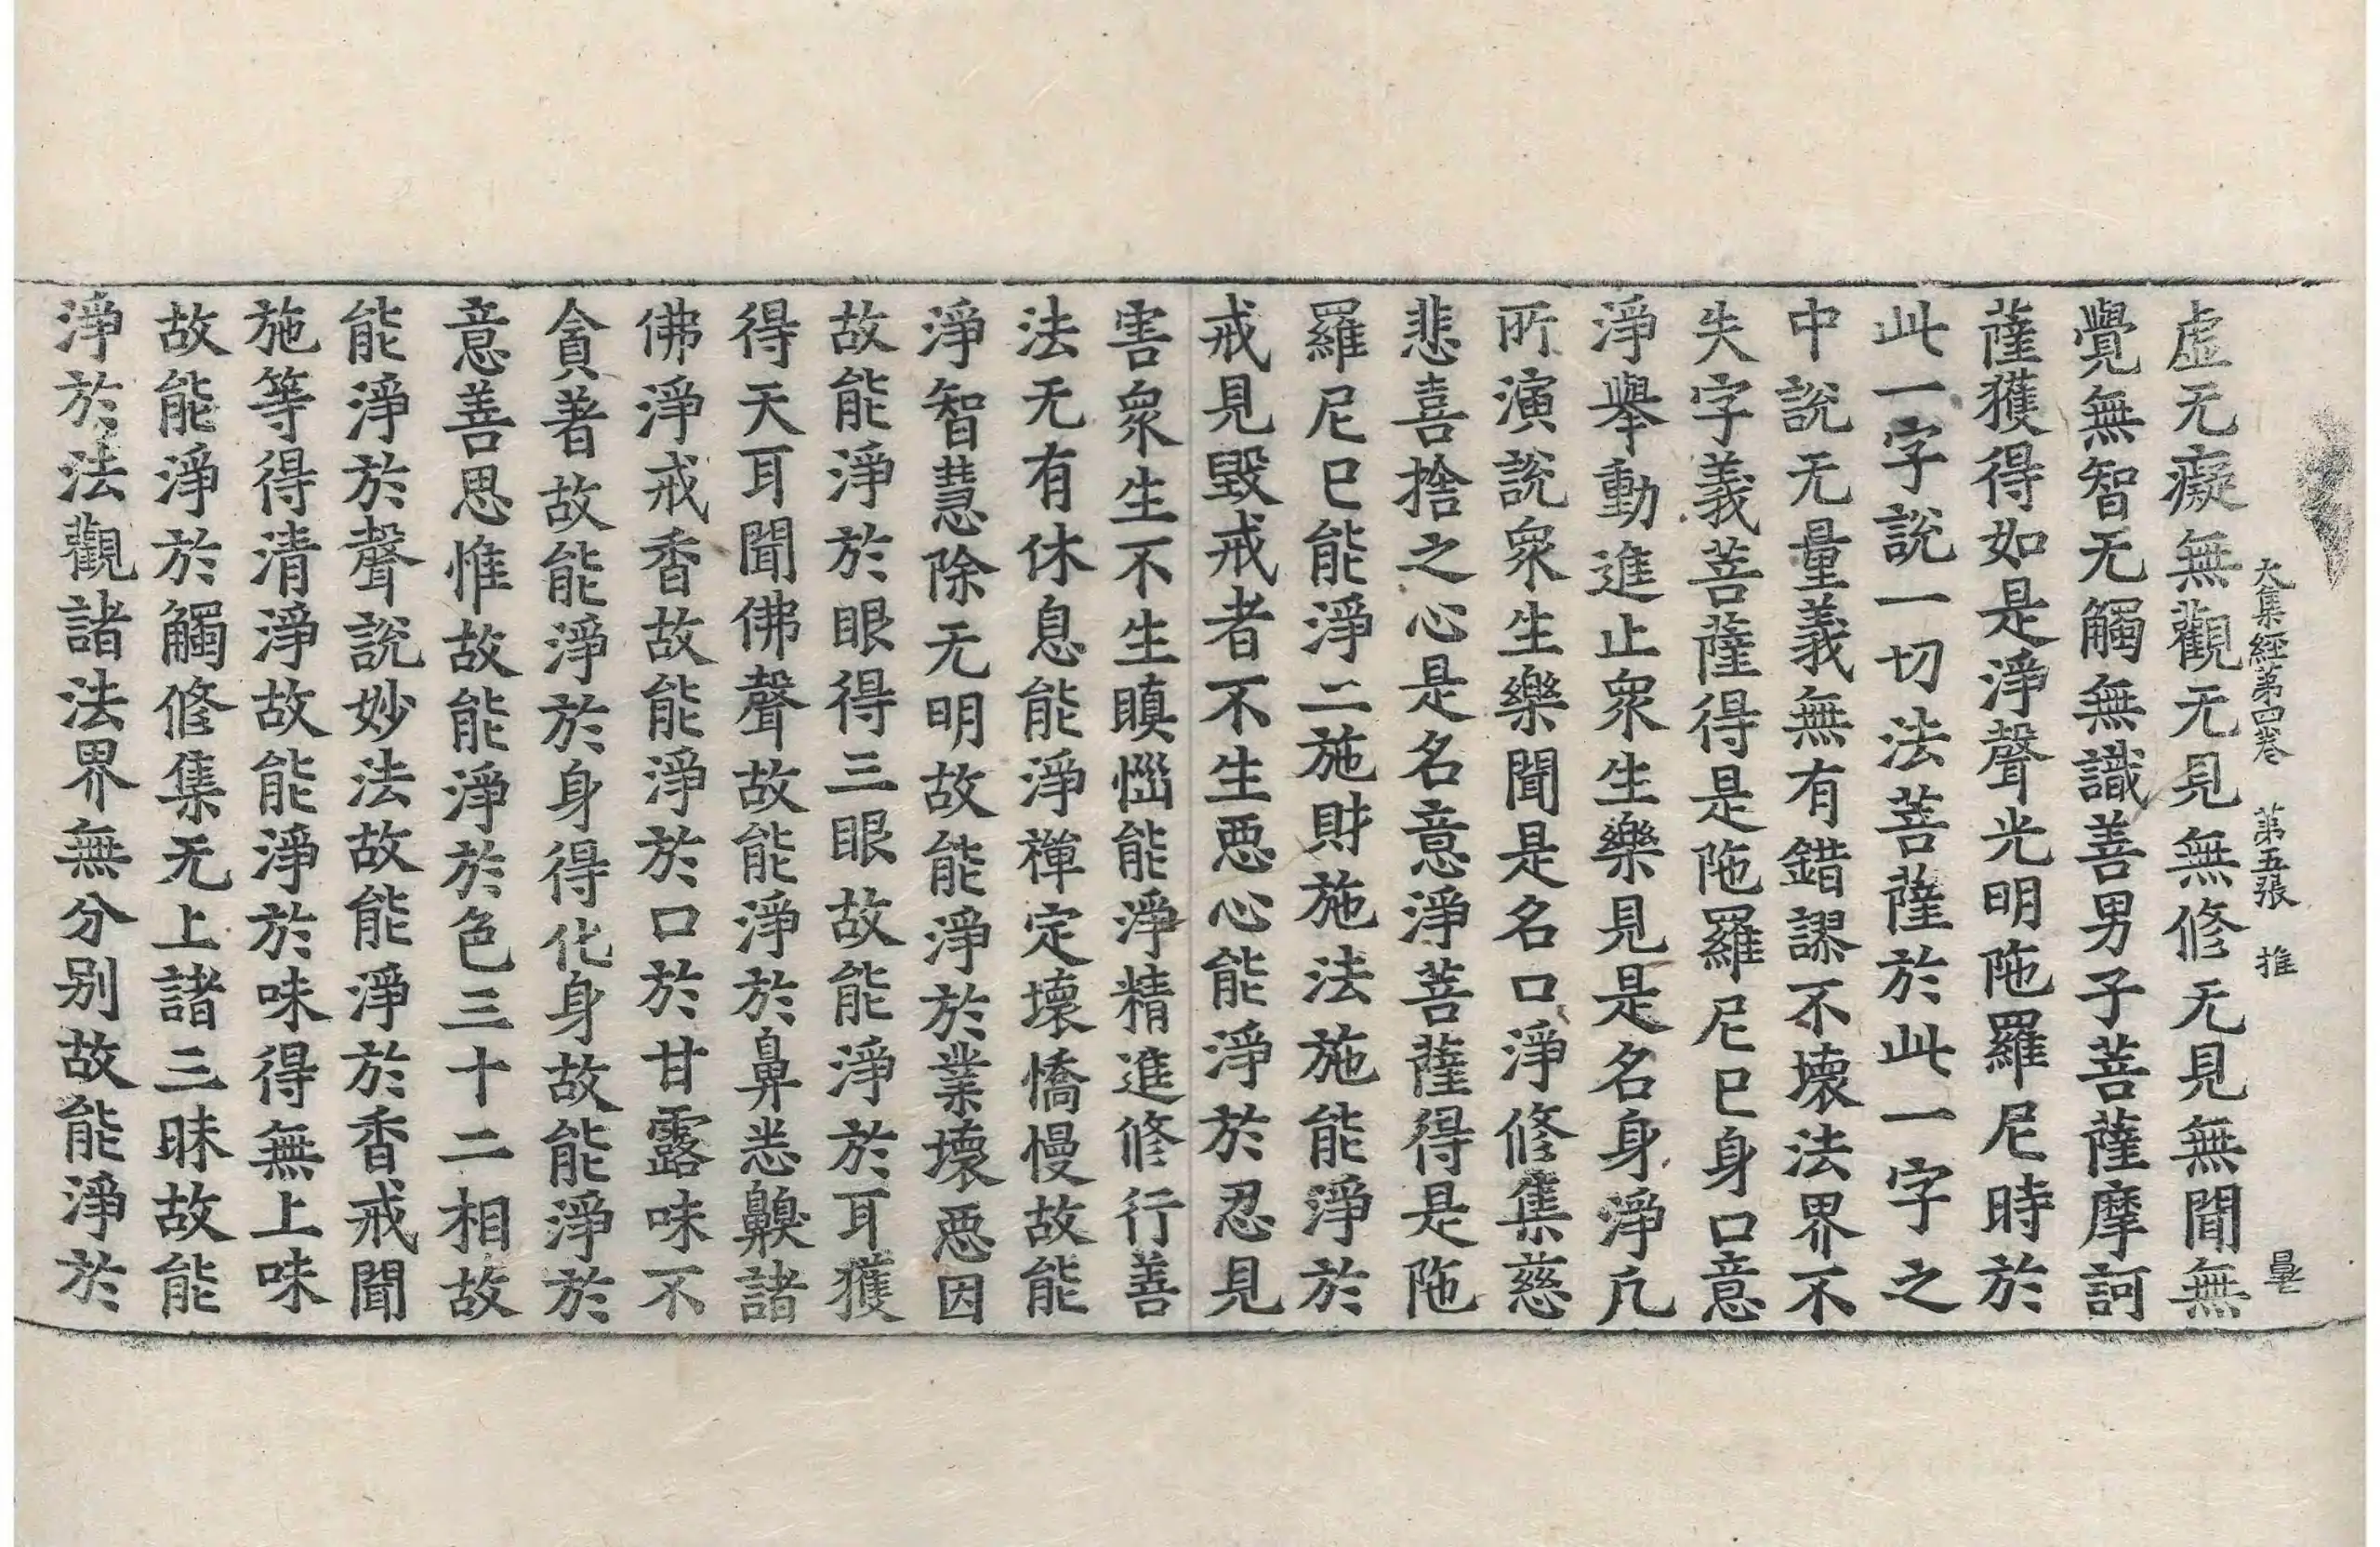 大集經第四卷　第五張　推
虛无癡無觀无見無修无見無聞無
覺無智无觸無識善男子菩薩摩訶
薩獲得如是淨聲光明陁羅尼時於
此一字說一切法菩薩於此一字之
中說无量義無有錯謬不壞法界不
失字義菩薩得是陁羅尼已身口意
淨舉動進止衆生樂見是名身淨凡
所演說衆生樂聞是名口淨修集慈
悲喜捨之心是名意淨菩薩得是陁
羅尼已能淨二施財施法施能淨於
戒見毀戒者不生惡心能淨於忍見
害衆生不生瞋惱能淨精進修行善
法无有休息能淨禪定壞憍慢故能
淨智慧除无明故能淨於業壞惡因
故能淨於眼得三眼故能淨於耳獲
得天耳聞佛聲故能淨於鼻悉齅諸
佛淨戒香故能淨於口於甘露味不
貪著故能淨於身得化身故能淨於
意善思惟故能淨於色三十二相故
能淨於聲說妙法故能淨於香戒聞
施等得清淨故能淨於味得無上味
故能淨於觸修集无上諸三昧故能
淨於法觀諸法界無分別故能淨於